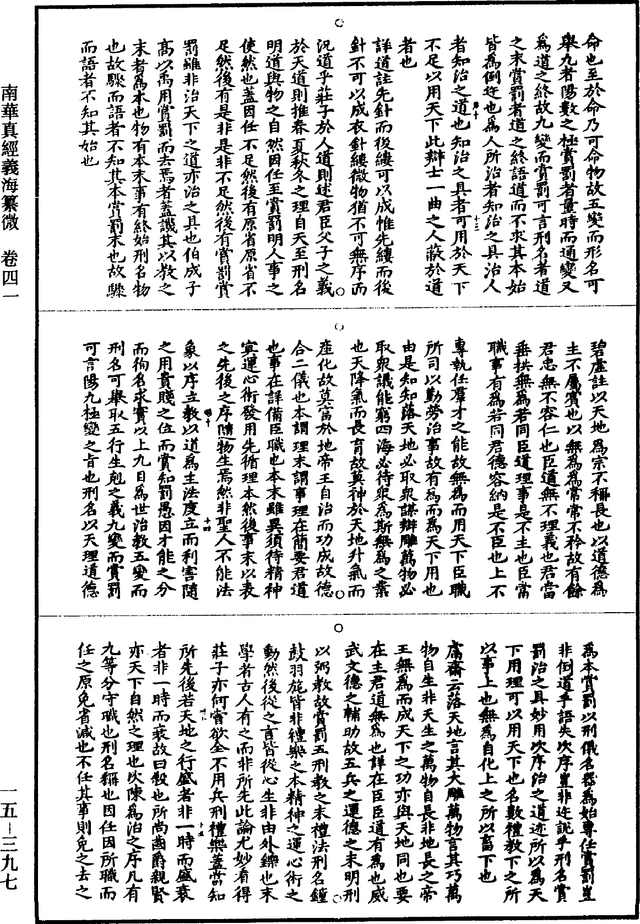 命也至於命乃可命物故五變而形名可
舉九者陽數之極賞罰者量時而通變又
為道之終故九變而賞罰可言刑名者道
之末賞罰者道之終語道而不求其本始
皆為倒迕也為人所治者知治之具治人
者知治之道也知治之具者可用於天下
不足以用天下此辯士一曲之人蔽於道
者也
詳道註先針而後縷可以成帷先縷而後
針不可以成衣針縷微物猶不可無序而
況道乎莊子於人道則述君臣父子之義
於天道則推春夏秋冬之理自天至刑名
明道與物之自然因任至賞罰明人事之
使然也蓋因任不足然後有原省原省不
足然後有是非是非不足然後有賞罰賞
罰雖非治天下之道亦治之具也伯成子
高以禹用賞罰而去焉者蓋譏其以教之
末者為本也物有本末事有終始刑名物
也故驟而語者不知其本賞罰末也故驟
而語者不知其始也
碧虛註以天地為宗不稱長也以道德為
主不厲實也以無為為常常不矜故有餘
君忠無不容仁也臣道無不理義也君當
垂拱無為若同臣道理事是不主也臣當
職事有為若同君德容納是不臣也上不
專執任羣才之能故無為而用天下臣職
所司以勤勞治事故有為而為天下用也
由是知知落天地必取衆謀辯雕萬物必
取衆議能窮四海必待衆為斯無為之業
也天降氣而長育故莫神於天地升氣而
產化故莫富於地帝王自治而功成故德
合二儀也本謂理末謂事理在簡要君道
也事在詳備臣職也本末雖異須待精神
冥運心術發用先循理本然後事末以表
之先後之序隨物生焉然非聖人不能法
象以序立教以道為主法度立而利害隨
之用貴賤之位而賞知罰愚因才能之分
而拘名求實以上九日為世治教五變而
刑名可舉取五行生剋之義九變而賞罰
可言陽九極變之旨也刑名以天理道德
為本賞罰以刑儀名器為始專任賞罰豈
非倒道乎語失次序豈非迕說乎刑名賞
罰治之具妙用次序治之道迹所以為天
下用理可以用天下也名數禮教下之所
以事上也無為自化上之所以畜下也
鬳齋云落天地言其大雕萬物言其巧萬
物自生非天生之萬物自長非地長之帝
王無為而成天下之功亦與天地同也要
在主君道無為也詳在臣臣道有為也威
武文德之輔助故五兵之運德之末明刑
以弼教故賞罰五刑教之末禮法刑名鐘
鼓羽旄皆非禮樂之本精神之運心術之
動然後從之言皆從心生非由外鑠也末
學者古人有之而非所先此論尤妙看得
莊子亦何嘗欲全不用兵刑禮樂蓋當知
所先後若天地之行盛者非一時而盛衰
者非一時而衰故曰殺也所尚齒爵親賢
亦天下自然之理也次陳為治之序凡有
九等分守職也刑名稱也因任因所職而
任之原免省減也不任其事則免之去之
南華真經義海纂微　卷四一
一五－三九七